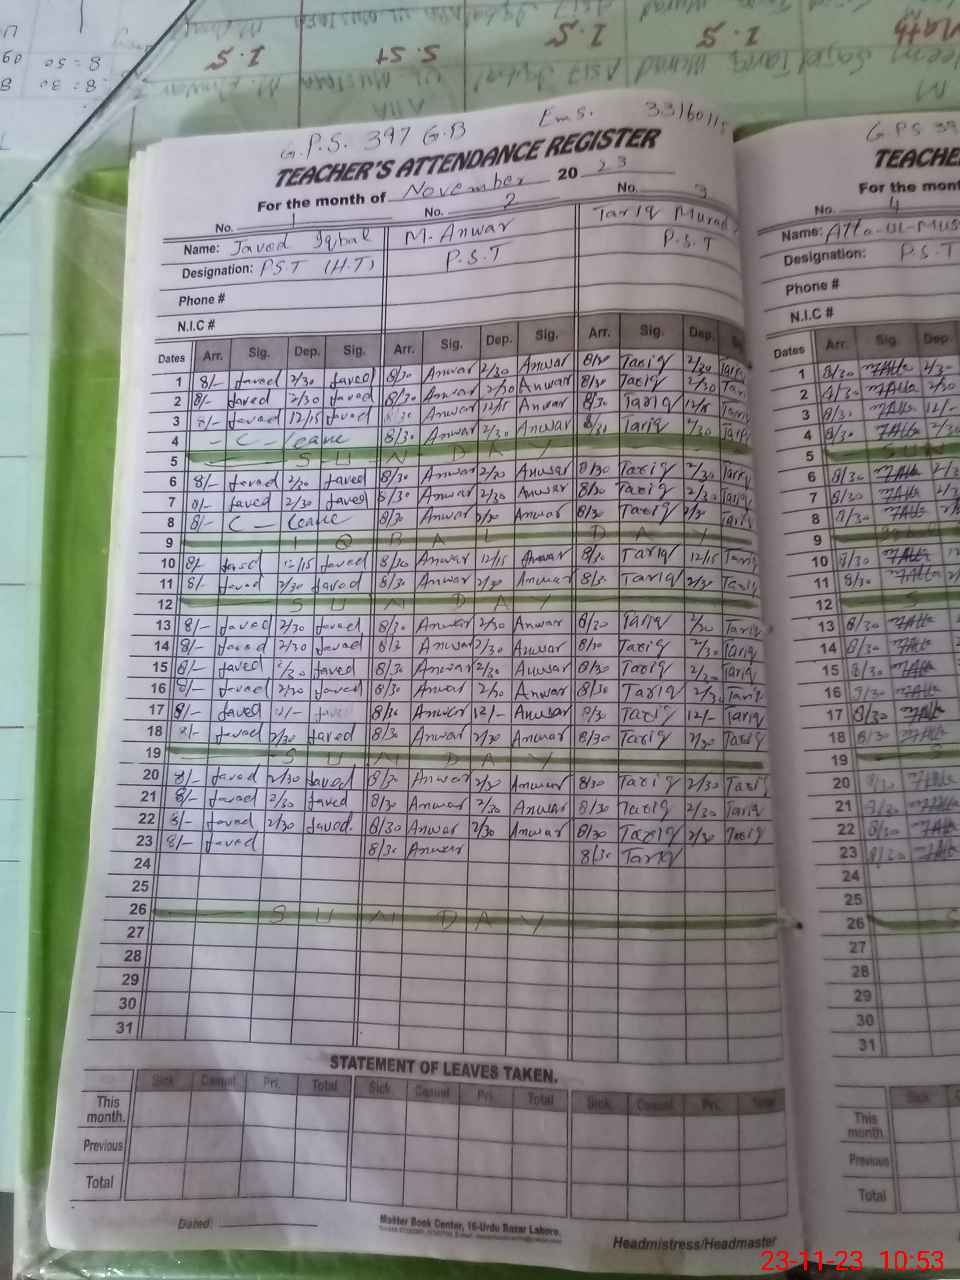 G.P.S. 397 G.B Ems. 3316011
TEACHER'S ATTENDANCE REGISTER
For the month of November 2023
No. 1 No. 2 No. 3
Name: Javed Iqbal M. Anwar Tariq Murad
Designation: P.S.T (H.T) P.S.T P.S.T
Phone #
N.I.C #
Dates Arr. Sig. Dep. Sig. Arr. Sig. Dep. Sig. Arr. Sig. Dep.
1 8/- Javed 2/30 Javed 8/30 Anwar 2/30 Anwar 8/30 Tariq 2/30 Tariq
2 8/- Javed 2/30 Javed 8/30 Anwar 2/30 Anwar 8/30 Tariq 2/30 Tari
3 8/- Javed 12/15 Javed 8/30 Anwar 12/15 Anwar 8/30 Tariq Tariq
4 - C - leave 8/30 Anwar 2/30 Anwar 8/30 Tariq 2/30 Tariq
5 SUNDAY
6 8/- Javed 2/30 Javed 8/30 Anwar 2/30 Anwar 8/30 Tariq 2/30 Tariq
7 8/- Javed 2/30 Javed 8/30 Anwar 2/30 Anwar 8/30 Tariq 2/30 Tariq
8 8/- C - leave 8/30 Anwar 2/30 Anwar 8/30 Tariq 2/30 Tariq
9 IQBAL DAY
10 8/- Javed 12/15 Javed 8/30 Anwar 12/15 Anwar 8/30 Tariq 12/15 Tariq
11 8/- Javed 2/30 Javed 8/30 Anwar 2/30 Anwar 8/30 Tariq 2/30 Tariq
12 SUNDAY
13 8/- Javed 2/30 Javed 8/30 Anwar 2/30 Anwar 8/30 Tariq 2/30 Tariq
14 8/- Javed 2/30 Javed 8/30 Anwar 2/30 Anwar 8/30 Tariq 2/30 Tariq
15 8/- Javed 2/30 Javed 8/30 Anwar 2/30 Anwar 8/30 Tariq 2/30 Tariq
16 8/- Javed 2/30 Javed 8/30 Anwar 2/30 Anwar 8/30 Tariq 2/30 Tariq
17 8/- Javed 12/- Javed 8/30 Anwar 12/- Anwar 8/30 Tariq 12/- Tariq
18 8/- Javed 2/30 Javed 8/30 Anwar 2/30 Anwar 8/30 Tariq 2/30 Tariq
19 SUNDAY
20 8/- Javed 2/30 Javed 8/30 Anwar 2/30 Anwar 8/30 Tariq 2/30 Tariq
21 8/- Javed 2/30 Javed 8/30 Anwar 2/30 Anwar 8/30 Tariq 2/30 Tariq
22 8/- Javed 2/30 Javed. 8/30 Anwar 2/30 Anwar 8/30 Tariq 2/30 Tariq
23 8/- Javed 8/30 Anwar 8/30 Tariq
24
25
26 SUNDAY
27
28
29
30
31
STATEMENT OF LEAVES TAKEN.
Sick Casual Pri. Total Sick Casual Pri. Total Sick Casual Pri. Total
This month.
Previous
Total
Dated:
Master Book Center, 16-Urdu Bazar Lahore.
Headmistress/Headmaster
G.P.S 39
TEACHE
For the mont
No. 4
Name: Atta-UL-Mus
Designation: P.S.T
Phone #
N.I.C #
Dates Arr. Sig. Dep.
1 8/30 2/30
2 8/30 2/30
3 8/30 12/-
4 8/30 2/30
5 SUN
6 8/30 2/3
7 8/30
8 8/30
9
10 8/30
11 8/30
12 S
13 8/30
14 8/30
15 8/30
16 8/30
17 8/30
18 8/30
19
20 8/30
21 8/30
22 8/30
23 8/30
24
25
26
27
28
29
30
31
Sick
This month
Previous
Total
23-11-23 10:53